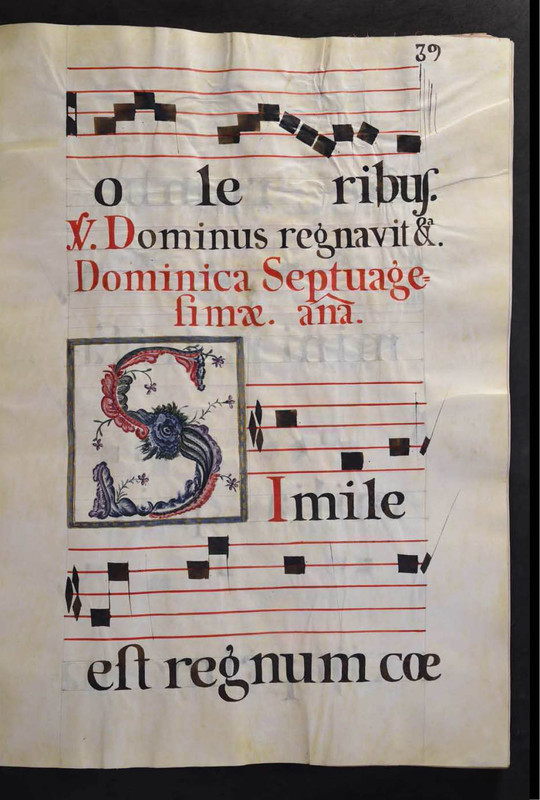 39
o le ribus.
℣. Dominus regnavit &ª.
Dominica Septuage=
simæ. anã.
SImile
est regnum cœ